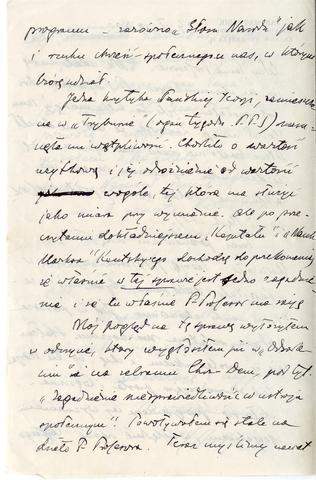 programu – zarówno „Słowa Narodu" jak
i ruchu chrześ-społecznego u nas, w którym
biorę udział.
Jedna krytyka Pańskiej Teorji,
na w „Trybunie" (organ tygodn. P.P.S)
mi wątpliwości. Chodziło o wartość
użytkową i jej odróżnienie od wartości
wogóle, tej która ma służyć
jako miara przy wymianie. Ale po prze-
czytaniu dokładniejszem „Kapitału" i „Nauk
Marksa" Kautsky'ego dochodzę do przekonania,
że właśnie w tej sprawie jest jedno zagadnie-
nie i że to właśnie P. Profesor ma rację
Mój pogląd na tę sprawę wyłożyłem
w odczycie, który wygłosiłem już w
i na zebraniu Chrz-Dem, pod tyt.
„Zagadnienie niesprawiedliwości w ustroju
społecznym". Powoływałem się stale na
dzieło P. Profesora. Teraz myślimy nawet